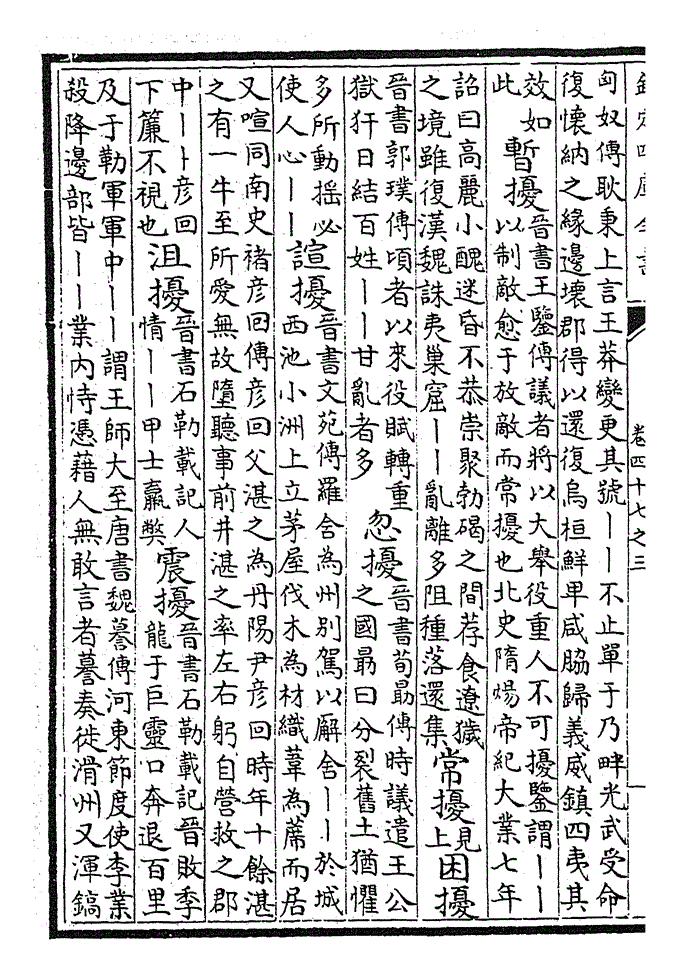 欽定四庫全書
卷四十七之三
匈奴傳耿秉上言王莽變更其號丨丨不止單于乃畔光武受命
復懷納之緣邊壞郡得以還復烏桓鮮卑咸脇歸義威鎮四夷其
效如
此
暫擾
晉書王鑒傳議者將以大舉役重人不可擾鑒謂丨丨
以制敵愈于放敵而常擾也北史隋煬帝紀大業七年
詔曰高麗小醜迷昏不恭崇聚勃碣之間荐食遼獩
之境雖復漢魏誅夷巢窟丨丨亂離多阻種落還集
常擾
見上
困擾
晉書郭璞傳頃者以來役賦轉重
獄犴日結百姓丨丨甘亂者多
忽擾
晉書荀勗傳時議遣王公
之國勗曰分裂舊土猶懼
多所動搖必
使人心丨丨
諠擾
晉書文苑傳羅含為州別駕以廨舍丨丨於城
西池小洲上立茅屋伐木為材織葦為蓆而居
又喧同南史褚彥回傳彥回父湛之為丹陽尹彥回時年十餘湛
之有一牛至所愛無故墮聽事前井湛之率左右躬自營救之郡
中丨丨彥回
下簾不視也
沮擾
晉書石勒載記人
情丨丨甲士羸弊
震擾
晉書石勒載記晉敗季
龍于巨靈口奔退百里
及于勒軍軍中丨丨謂王師大至唐書魏謩傳河東節度使李業
殺降邊部皆丨丨業內恃憑藉人無敢言者謩奏徙滑州又渾鎬